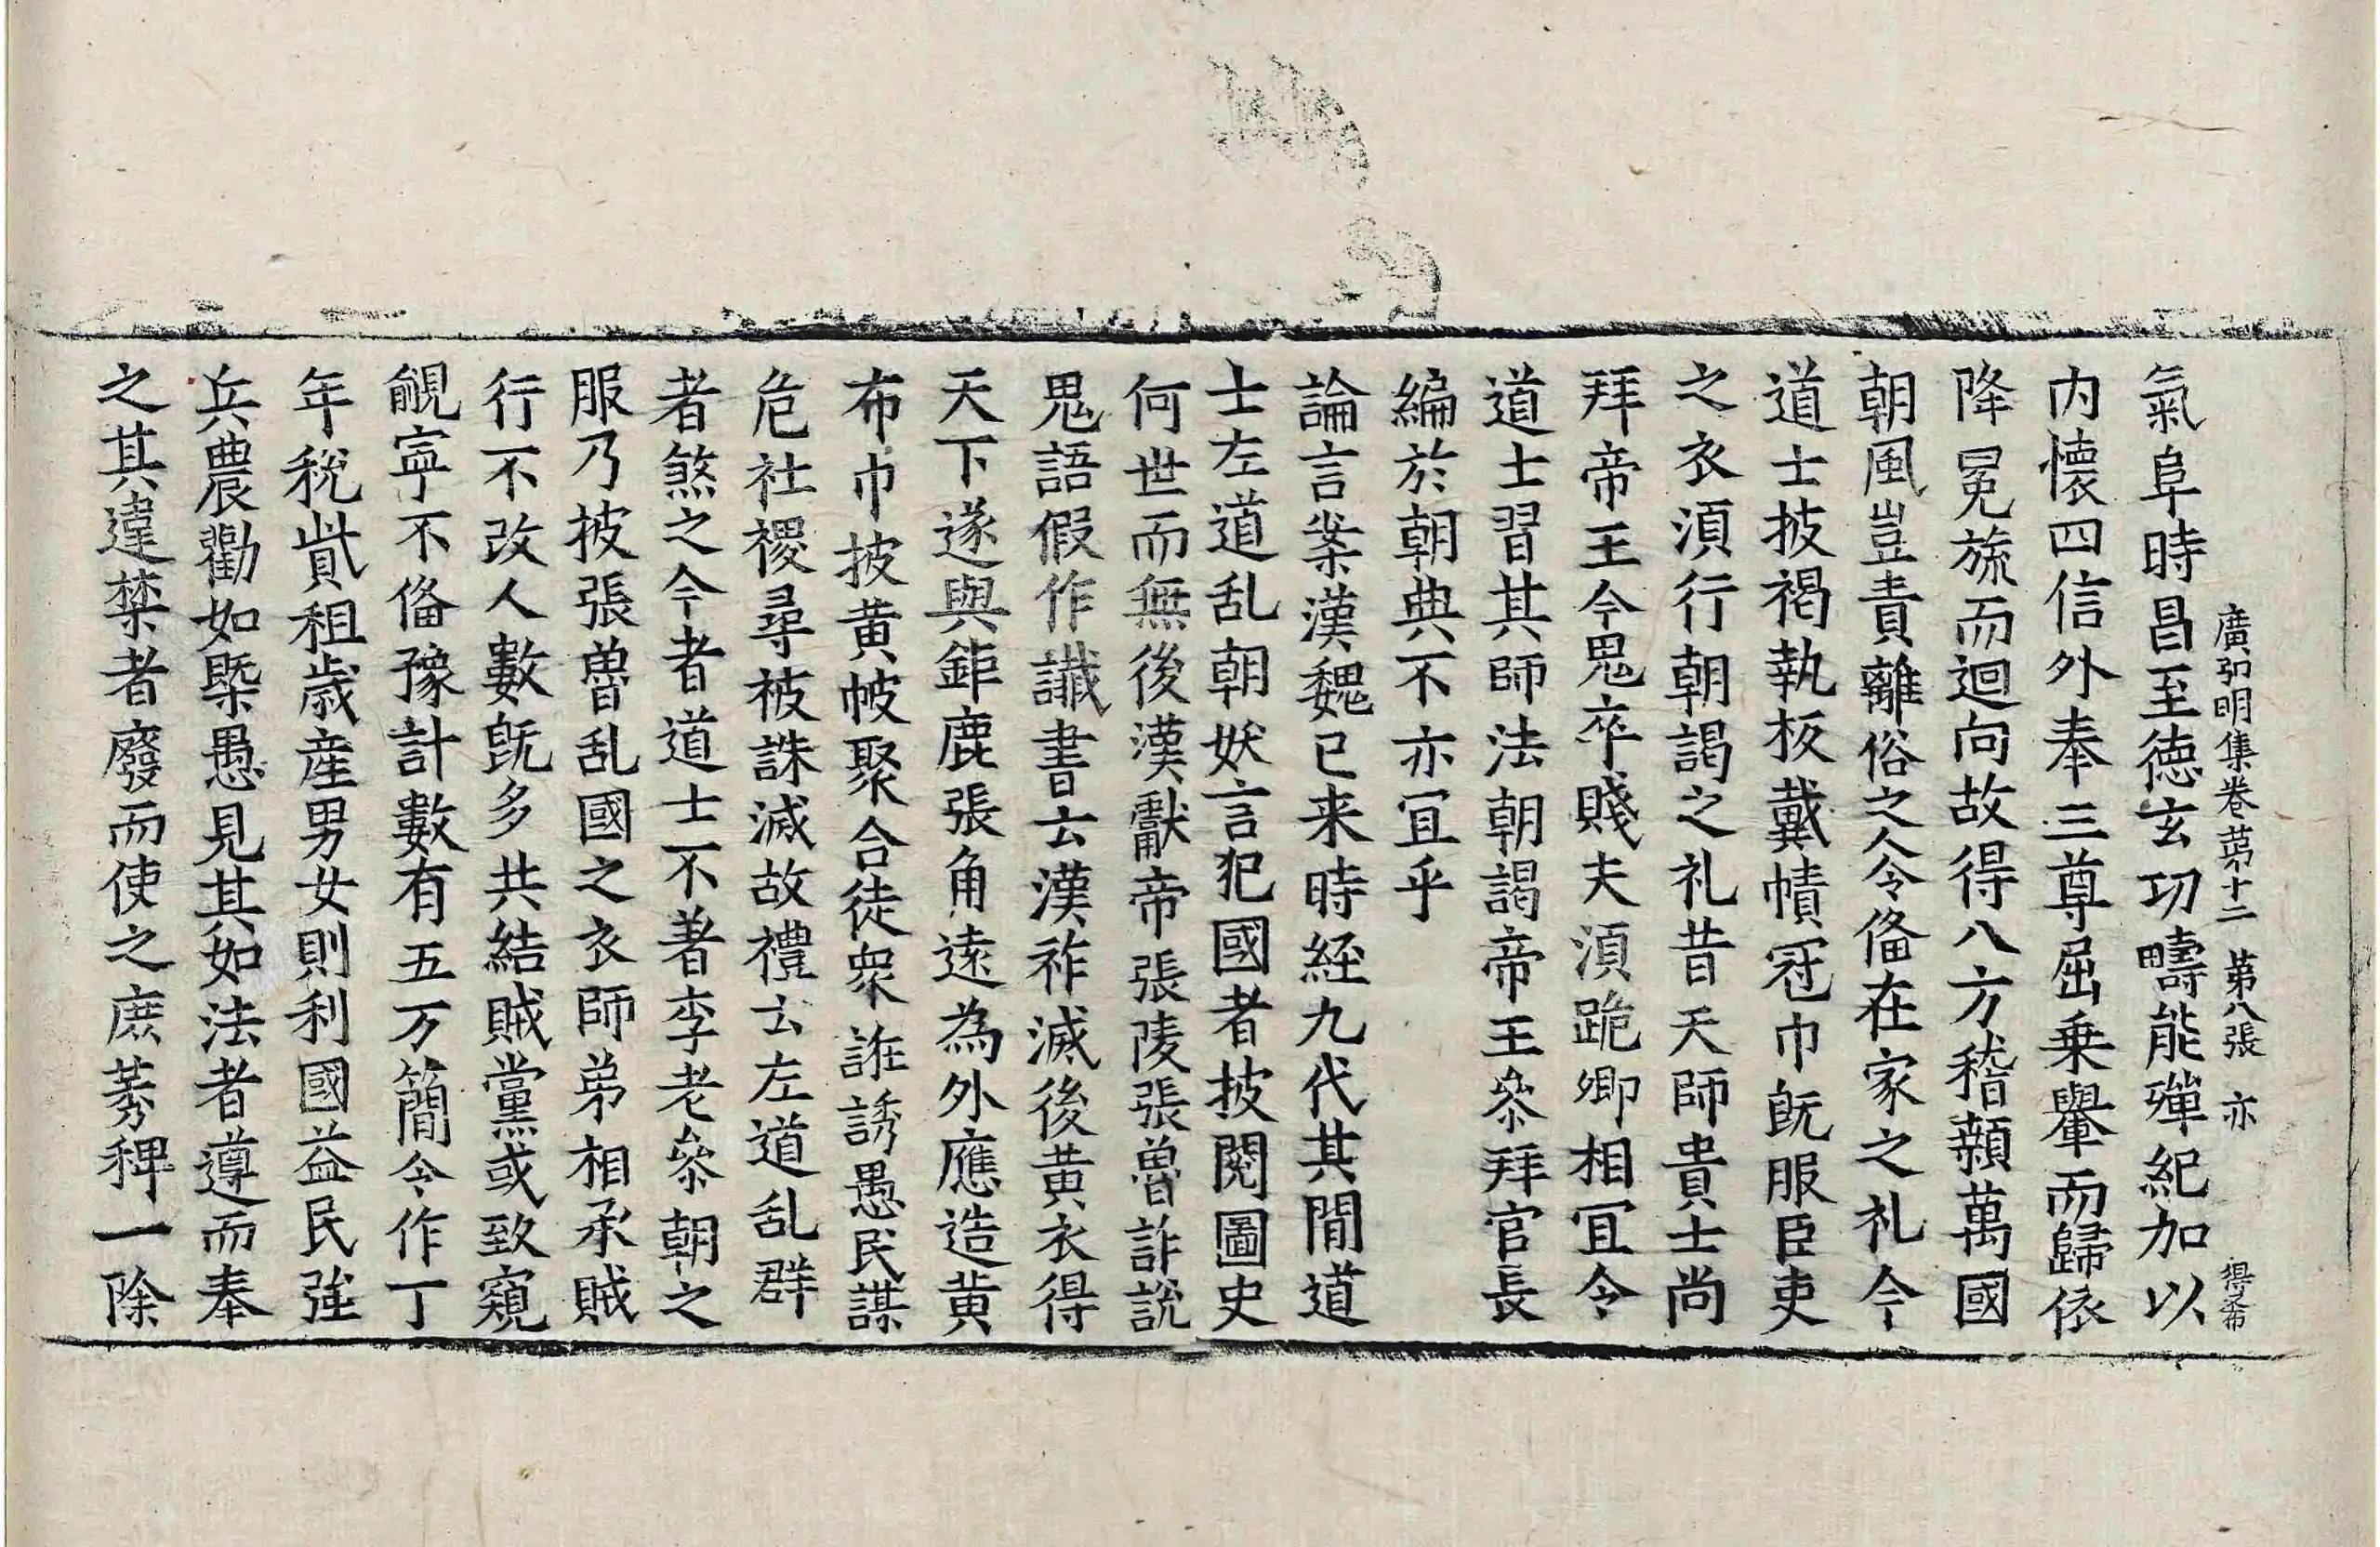 廣弘明集卷苐十二　苐八張　亦　得希
氣阜時昌至德玄功疇能殫紀加以
内懷四信外奉三尊屈乗轝而歸依
降冕旒而迴向故得八方稽顙萬國
朝風豈責離俗之人令俻在家之礼今
道士披褐執板戴幘冠巾旣服臣吏
之衣湏行朝謁之礼昔天師貴士尚
拜帝王今鬼卒賤夫湏跪卿相冝令
道士習其師法朝謁帝王叅拜官長
編於朝典不亦冝乎
論言案漢魏已来時経九代其閒道
士左道乱朝妖言犯國者披閱圖史
何世而無後漢獻帝張陵張魯詐説
鬼語假作讖書云漢祚滅後黄衣得
天下遂與鉅鹿張角遠為外應造黄
布巾披黄帔聚合徒衆誑誘愚民謀
危社稷尋被誅滅故禮云左道乱群
者煞之今者道士不著李老叅朝之
服乃披張魯乱國之衣師弟相承賊
行不改人數旣多共結賊黨或致窺
覦寧不俻豫計數有五万簡令作丁
年稅貲租歳産男女則利國益民強
兵農勸如槩愚見其如法者遵而奉
之其違禁者廢而使之庶莠稗一除